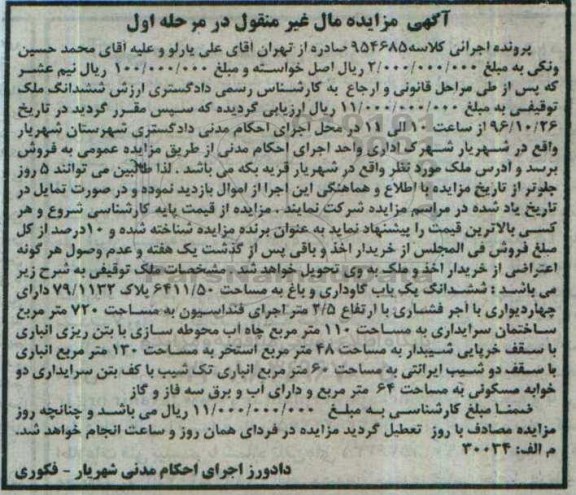 آگهی مزایده مال غیر منقول در مرحله اول
پرونده اجرائی کلاسه ۹۵۴۶۸۵ صادره از تهران آقای علی یارلو و علیه آقای محمد حسین
ونکی به مبلغ ۲/۰۰۰/۰۰۰/۰۰۰ ریال اصل خواسته و مبلغ ۱۰۰/۰۰۰/۰۰۰ ریال نیم عشر
که پس از طی مراحل قانونی و ارجاع به کارشناس رسمی دادگستری ارزش ششدانگ ملک
توقیفی به مبلغ ۱۱/۰۰۰/۰۰۰/۰۰۰ ریال ارزیابی گردیده که سپس مقرر گردید در تاریخ
۹۶/۱۰/۲۶ از ساعت ۱۰ الی ۱۱ در محل اجرای احکام مدنی دادگستری شهرستان شهریار
واقع در شهریار شهرک اداری واحد اجرای احکام مدنی از طریق مزایده عمومی به فروش
برسد و آدرس ملک مورد نظر واقع در شهریار قریه بکه می باشد . لذا طالبین می توانند ۵ روز
جلوتر از تاریخ مزایده با اطلاع و هماهنگی این اجرا از اموال بازدید نموده و در صورت تمایل در
تاریخ یاد شده در مراسم مزایده شرکت نمایند . مزایده از قیمت پایه کارشناسی شروع و هر
کسی بالاترین قیمت را پیشنهاد نماید به عنوان برنده مزایده شناخته شده و ۱۰درصد از کل
مبلغ فروش فی المجلس از خریدار اخذ و باقی پس از گذشت یک هفته و عدم وصول هر گونه
اعتراضی از خریدار اخذ و ملک به وی تحویل خواهد شد . مشخصات ملک توقیفی به شرح زیر
می باشد : ششدانگ یک باب گاوداری و باغ به مساحت ۶۴۱۱/۵۰ پلاک ۷۹/۱۱۳۲ دارای
چهاردیواری با آجر فشاری با ارتفاع ۲/۵ متر اجرای فنداسیون به مساحت ۷۲۰ متر مربع
ساختمان سرایداری به مساحت ۱۱۰ متر مربع چاه آب محوطه سازی با بتن ریزی انباری
با سقف خرپایی شیبدار به مساحت ۴۸ متر مربع استخر به مساحت ۱۳۰ متر مربع انباری
با سقف دو شیب ایرانتی به مساحت ۶۰ متر مربع انباری تک شیب با کف بتن سرایداری دو
خوابه مسکونی به مساحت ۶۴ متر مربع و دارای آب و برق سه فاز و گاز
ضمنا مبلغ کارشناسی به مبلغ ۱۱/۰۰۰/۰۰۰/۰۰۰ ریال می باشد و چنانچه روز
مزایده مصادف با روز تعطیل گردید مزایده در فردای همان روز و ساعت انجام خواهد شد.
م الف: ۳۰۰۳۴
دادورز اجرای احکام مدنی شهریار - فکوری